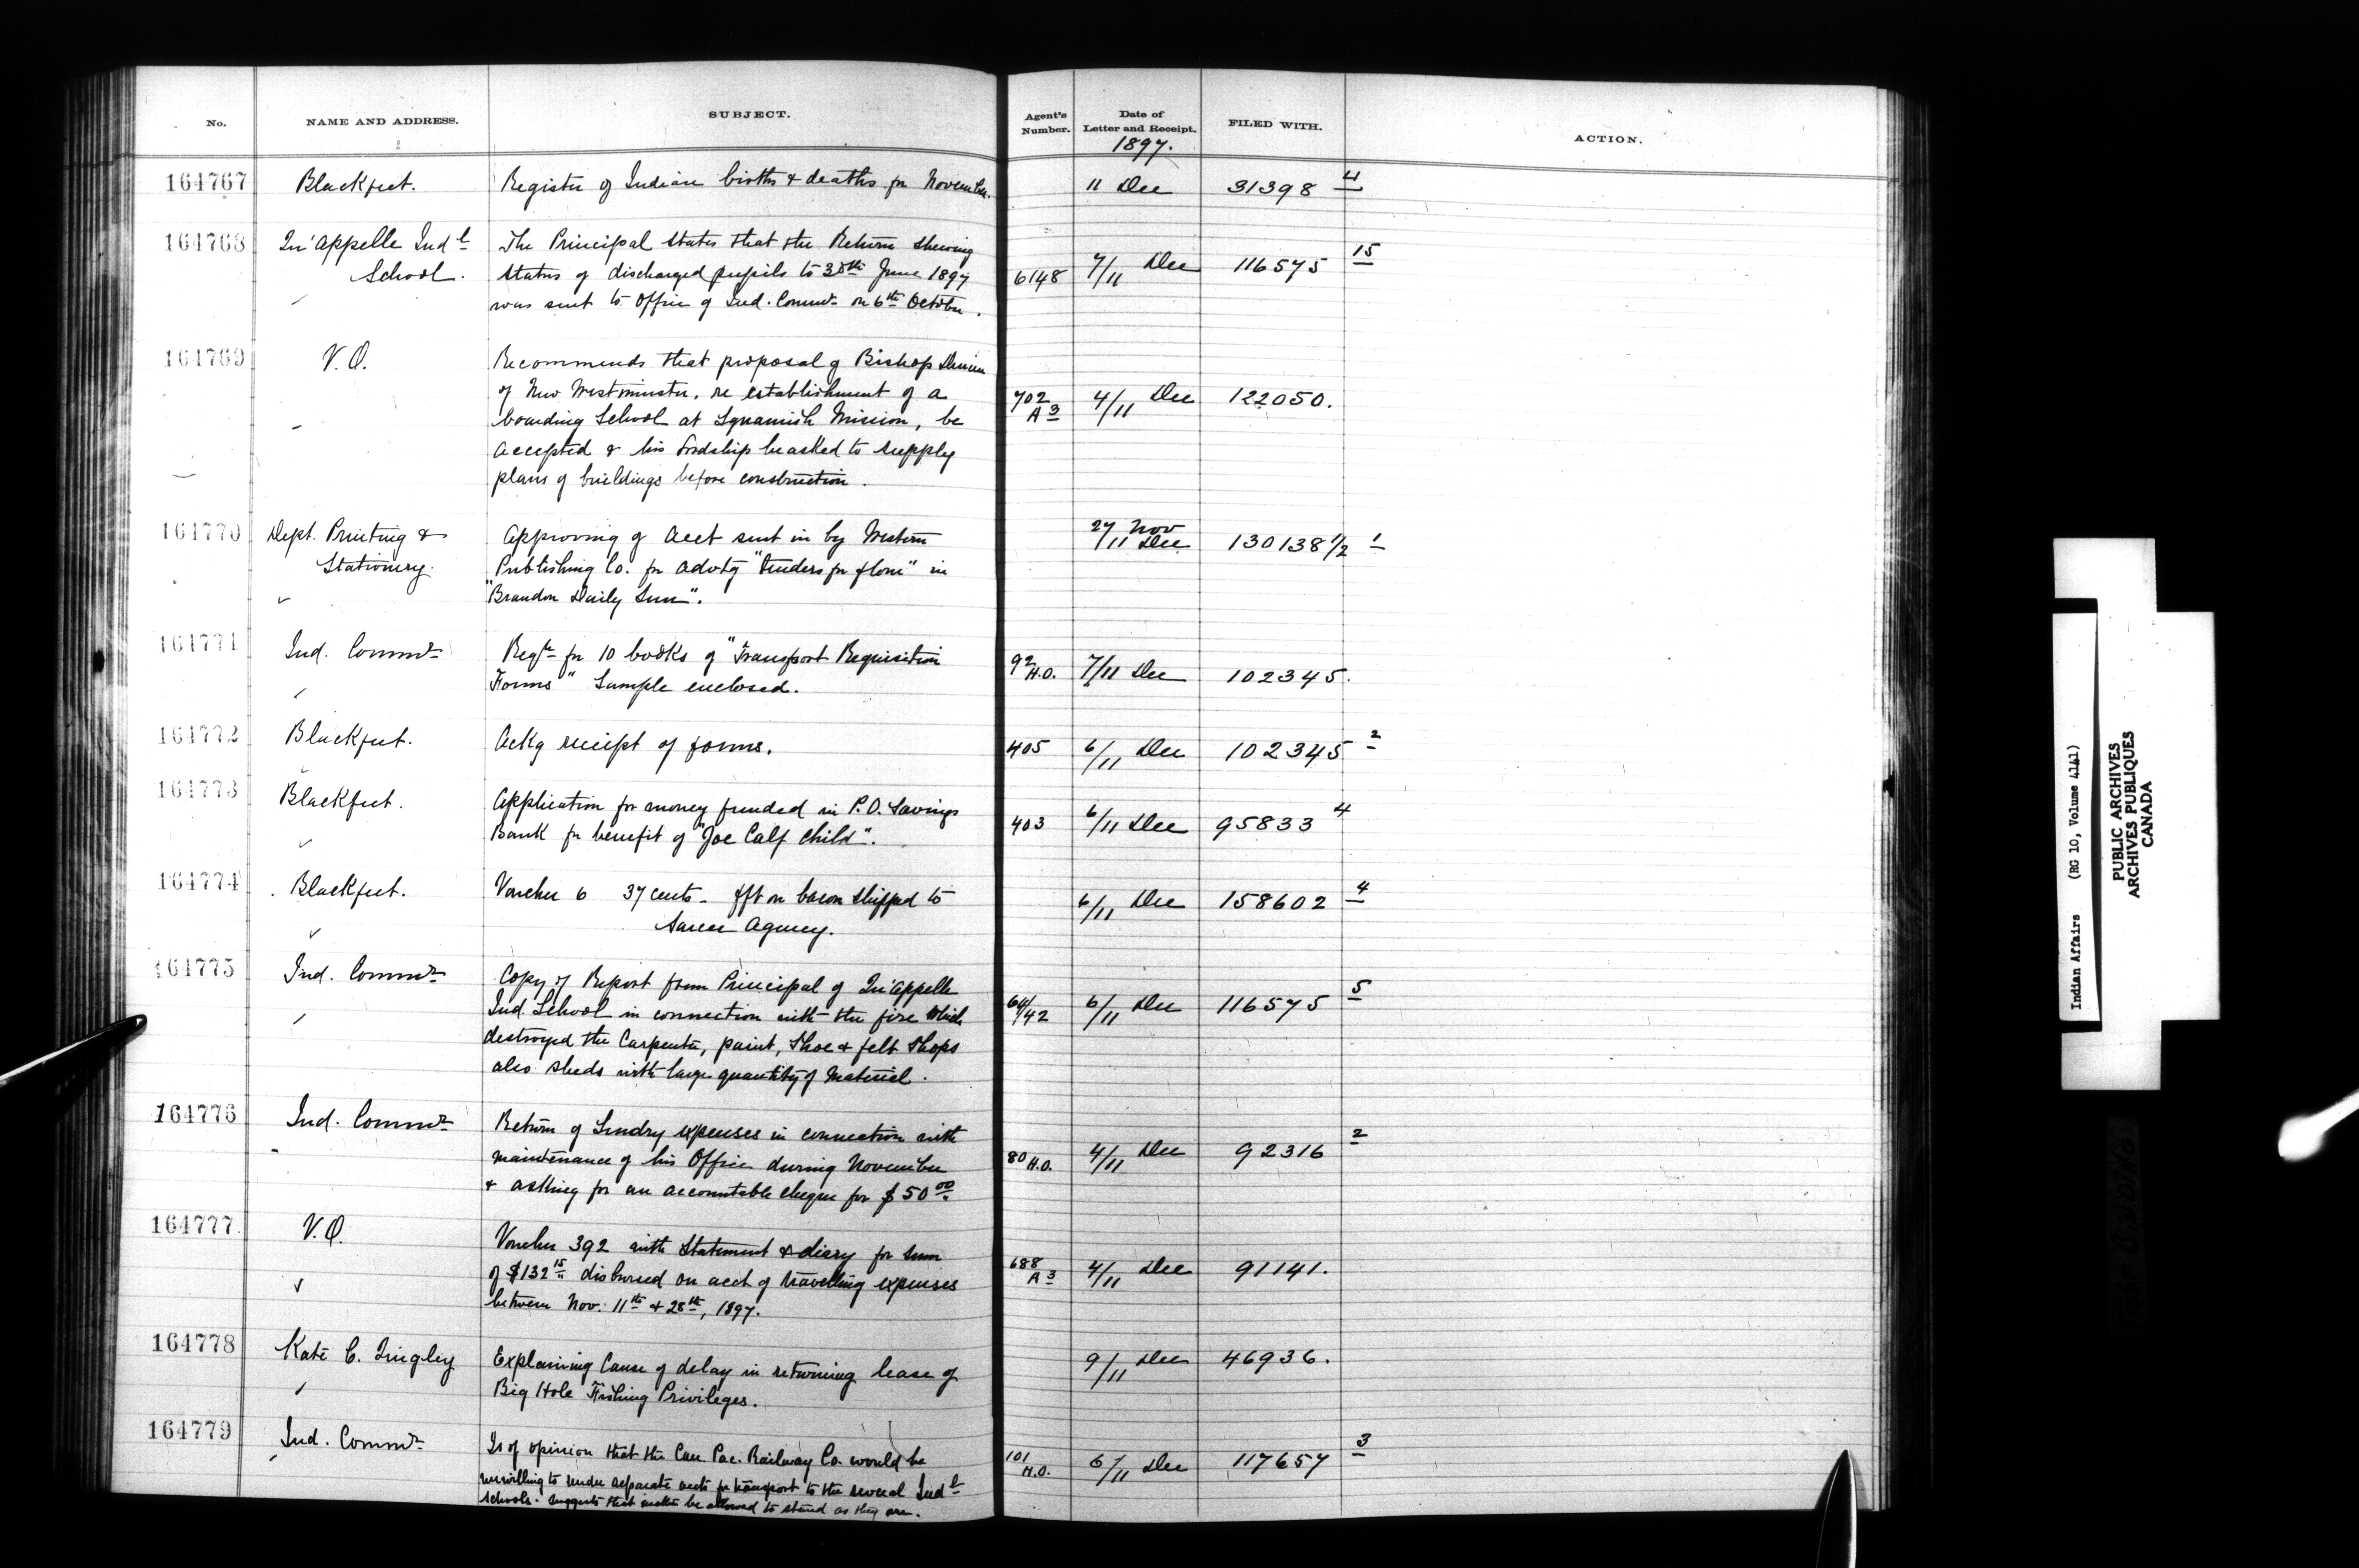 No. NAME AND ADDRESS. SUBJECT. Agent's Number. Date of Letter and Receipt. FILED WITH. ACTION.
1897.
164767 Blackfeet. Register of Indian births & deaths for November. 11 Dec 31398 4
164768 Qu'Appelle Ind l The Principal states that the Return shewing
School. status of discharged pupils to 30th June 1897 6148 7/11 Dec 116575 15
was sent to Office of Ind. Commr on 6th October.
164769 V.O. Recommends that proposal of Bishop Durieu
of New Westminster, re establishment of a 702 A3 4/11 Dec 122050.
boarding School at Squamish Mission, be
accepted & his Lordship be asked to supply
plans of buildings before construction.
164770 Dept. Printing & Approving of acct sent in by Western 27 Nov /11 Dec 130138 1/2 1
Stationery. Publishing Co. for advtg "Tenders for flour" in
"Brandon Daily Sun".
164771 Ind. Commr Reqn for 10 books of "Transport Requisition 92 H.O. 7/11 Dec 102345.
Forms" Sample enclosed.
164772 Blackfeet. Ackg receipt of forms. 405 6/11 Dec 102345 2
164773 Blackfeet. Application for money funded in P.O. Savings
Bank for benefit of "Joe Calf Child". 403 6/11 Dec 95833 4
164774 Blackfeet. Voucher 6 37 cents - frt on bacon shipped to 6/11 Dec 158602 4
Sarcee Agency.
164775 Ind. Commr Copy of Report from Principal of Qu'Appelle
Ind. School in connection with the fire which 64/42 6/11 Dec 116575 5
destroyed the Carpenter, paint, Shoe & felt Shops
also sheds with large quantity of material.
164776 Ind. Commr Return of Sundry expenses in connection with
maintenance of his Office during November 80 H.O. 4/11 Dec 92316 2
& asking for an accountable cheque for $50.00
164777 V.O. Voucher 392 with Statement & diary for sum
of $132.15 disbursed on acct of travelling expenses 688 A3 4/11 Dec 91141.
between Nov. 11th & 28th, 1897.
164778 Kate C. Tingley Explaining Cause of delay in returning lease of 9/11 Dec 46936.
Big Hole Fishing Privileges.
164779 Ind. Commr Is of opinion that the Can Pac. Railway Co. would be 101 H.O. 6/11 Dec 117657 3
unwilling to render separate accts for transport to the several Ind l
Schools. Suggests that matter be allowed to stand as they are.
Indian Affairs (RG 10, Volume 4141)
PUBLIC ARCHIVES
ARCHIVES PUBLIQUES
CANADA